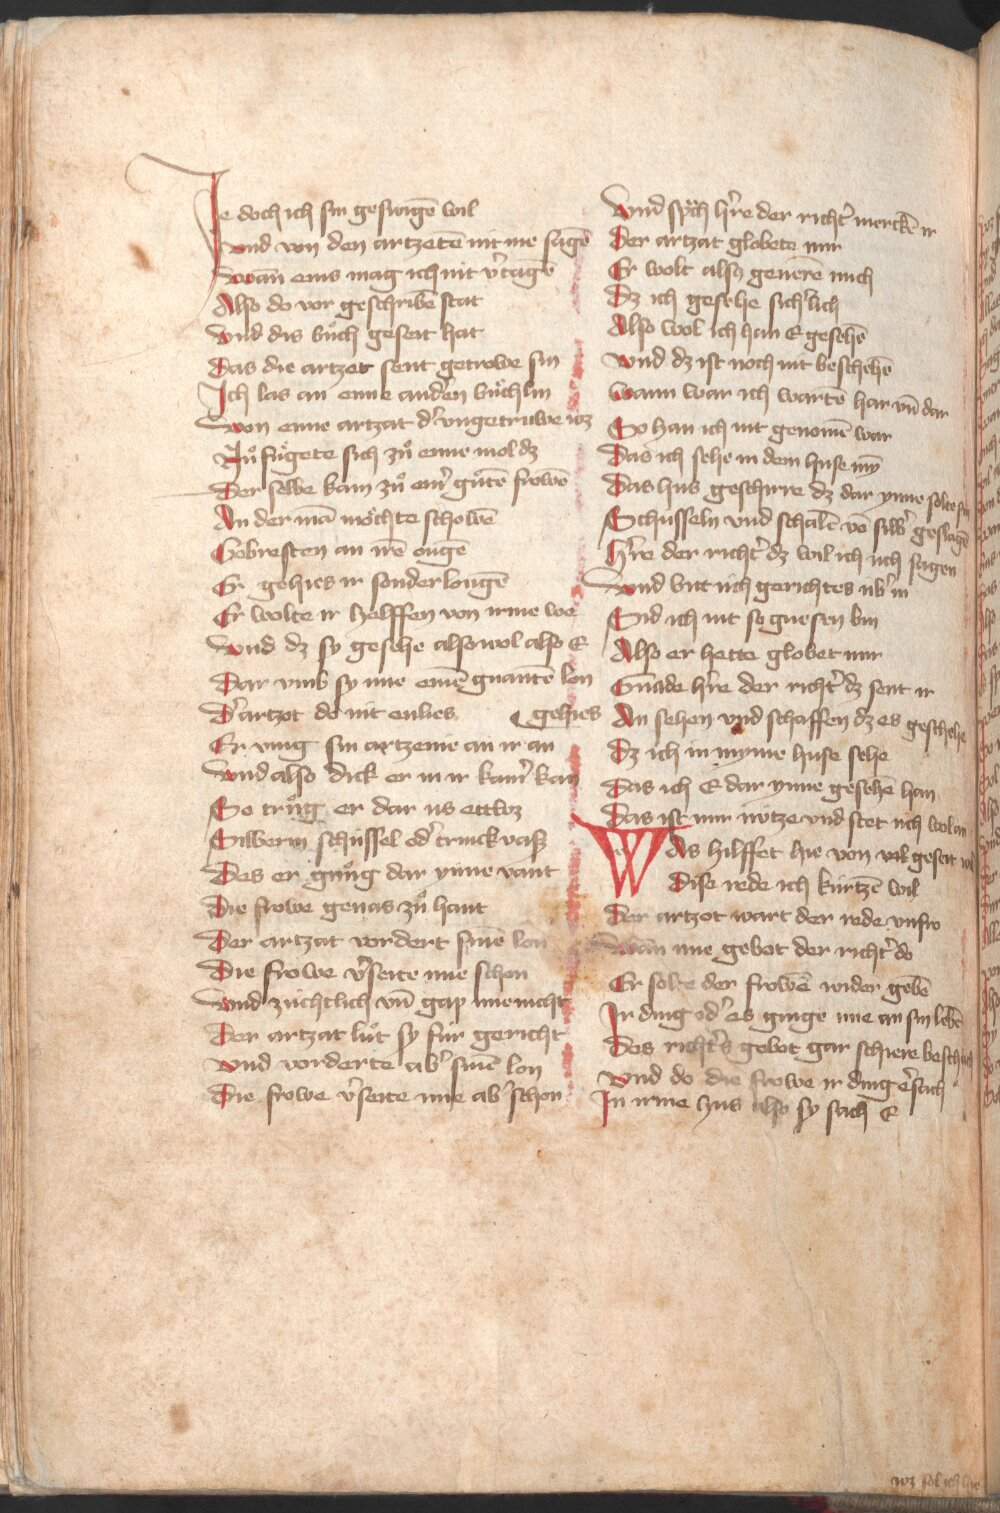 Je doch ich sin geswigē wil
Vnd von den artzetē nit me sagē
Wan̄ eins mag ich nit v̓tagē
Also do vor geschribē stat
Vnd dis bůch geseit hat
Das die artzet sent getrowe sin
Ich las an eime andern bůchlin
Von eime artzat d̓ vngetruwe wz
Zů fůgete sich zů eime mol dz
Der selbe kam zů eiṁ gůtē frowē
An der mā mőchte schowē
Gebresten an irē ougē
Er gehies ir sonder lougē
Er wolte ir helffen von irme we
Vnd dz sy gesehe also wol also E
Dar vmb sy ime einē gnantē lon
gehies
D̓ artzot do nit enlies
Er ving sin artzenie an ir an
Vnd also dick er in ir kam̓ kan
So trůg er dar us ettwz
Silberin schússel od̓ trinckvasz
Des er gnůg dar ynne vant
Die frowe genas zů hant
Der artzat vordert sinē lon
Die frowe v̓seite ime schon
Vnd zúchtlich vn̄ gap ime nicht
Der artzat lůt sy fúr gericht
Vnd vorderte ab̓ sinē lon
Die frowe v̓seite ime ab̓ schon
Vnd sp̊ch h̓re der richt̓ merckē ir
Der artzat globete mir
Er wolt also generē mich
Dz ich gesehe sich̓lich
Also wol ich han E gesehē
Vnd dz ist noch nit beschehē
Wann war ich wartē har vn̄ dar
So han ich nit genomē war
Das ich sehe in dem huse mȳ
Das hus geschirre dz dar ynne solte sin
Schússeln vnd schalē vō silb̓ geslagē
H̓re der richt̓ dz wil ich úch sagen
Vnd bitt úch gerichtes úb̓ in
Sid ich nit so genesen bin
Also er hette globet mir
Gnade h̓re der richt̓ dz sent ir
An sehen vnd schaffen dz es geschehe
Dz ich in myme huse sehe
Das ich E dar ynne gesehē han
Das ist mir nútze vnd stet úch wol an
Was hilffet hie von vil geseit
Dise rede ich kúrtzē wil
Der artzot wart der rede vnfro
Wan̄ ime gebot der richt̓ do
Er solte der frowē wider gebē
Ir ding od̓ es ginge ime an sin lebē
Des richt̓s gebot gar schiere beschach
Vnd do die frowe ir ding e̓sach
In irme hus also sy sach E
wz sol ich hie